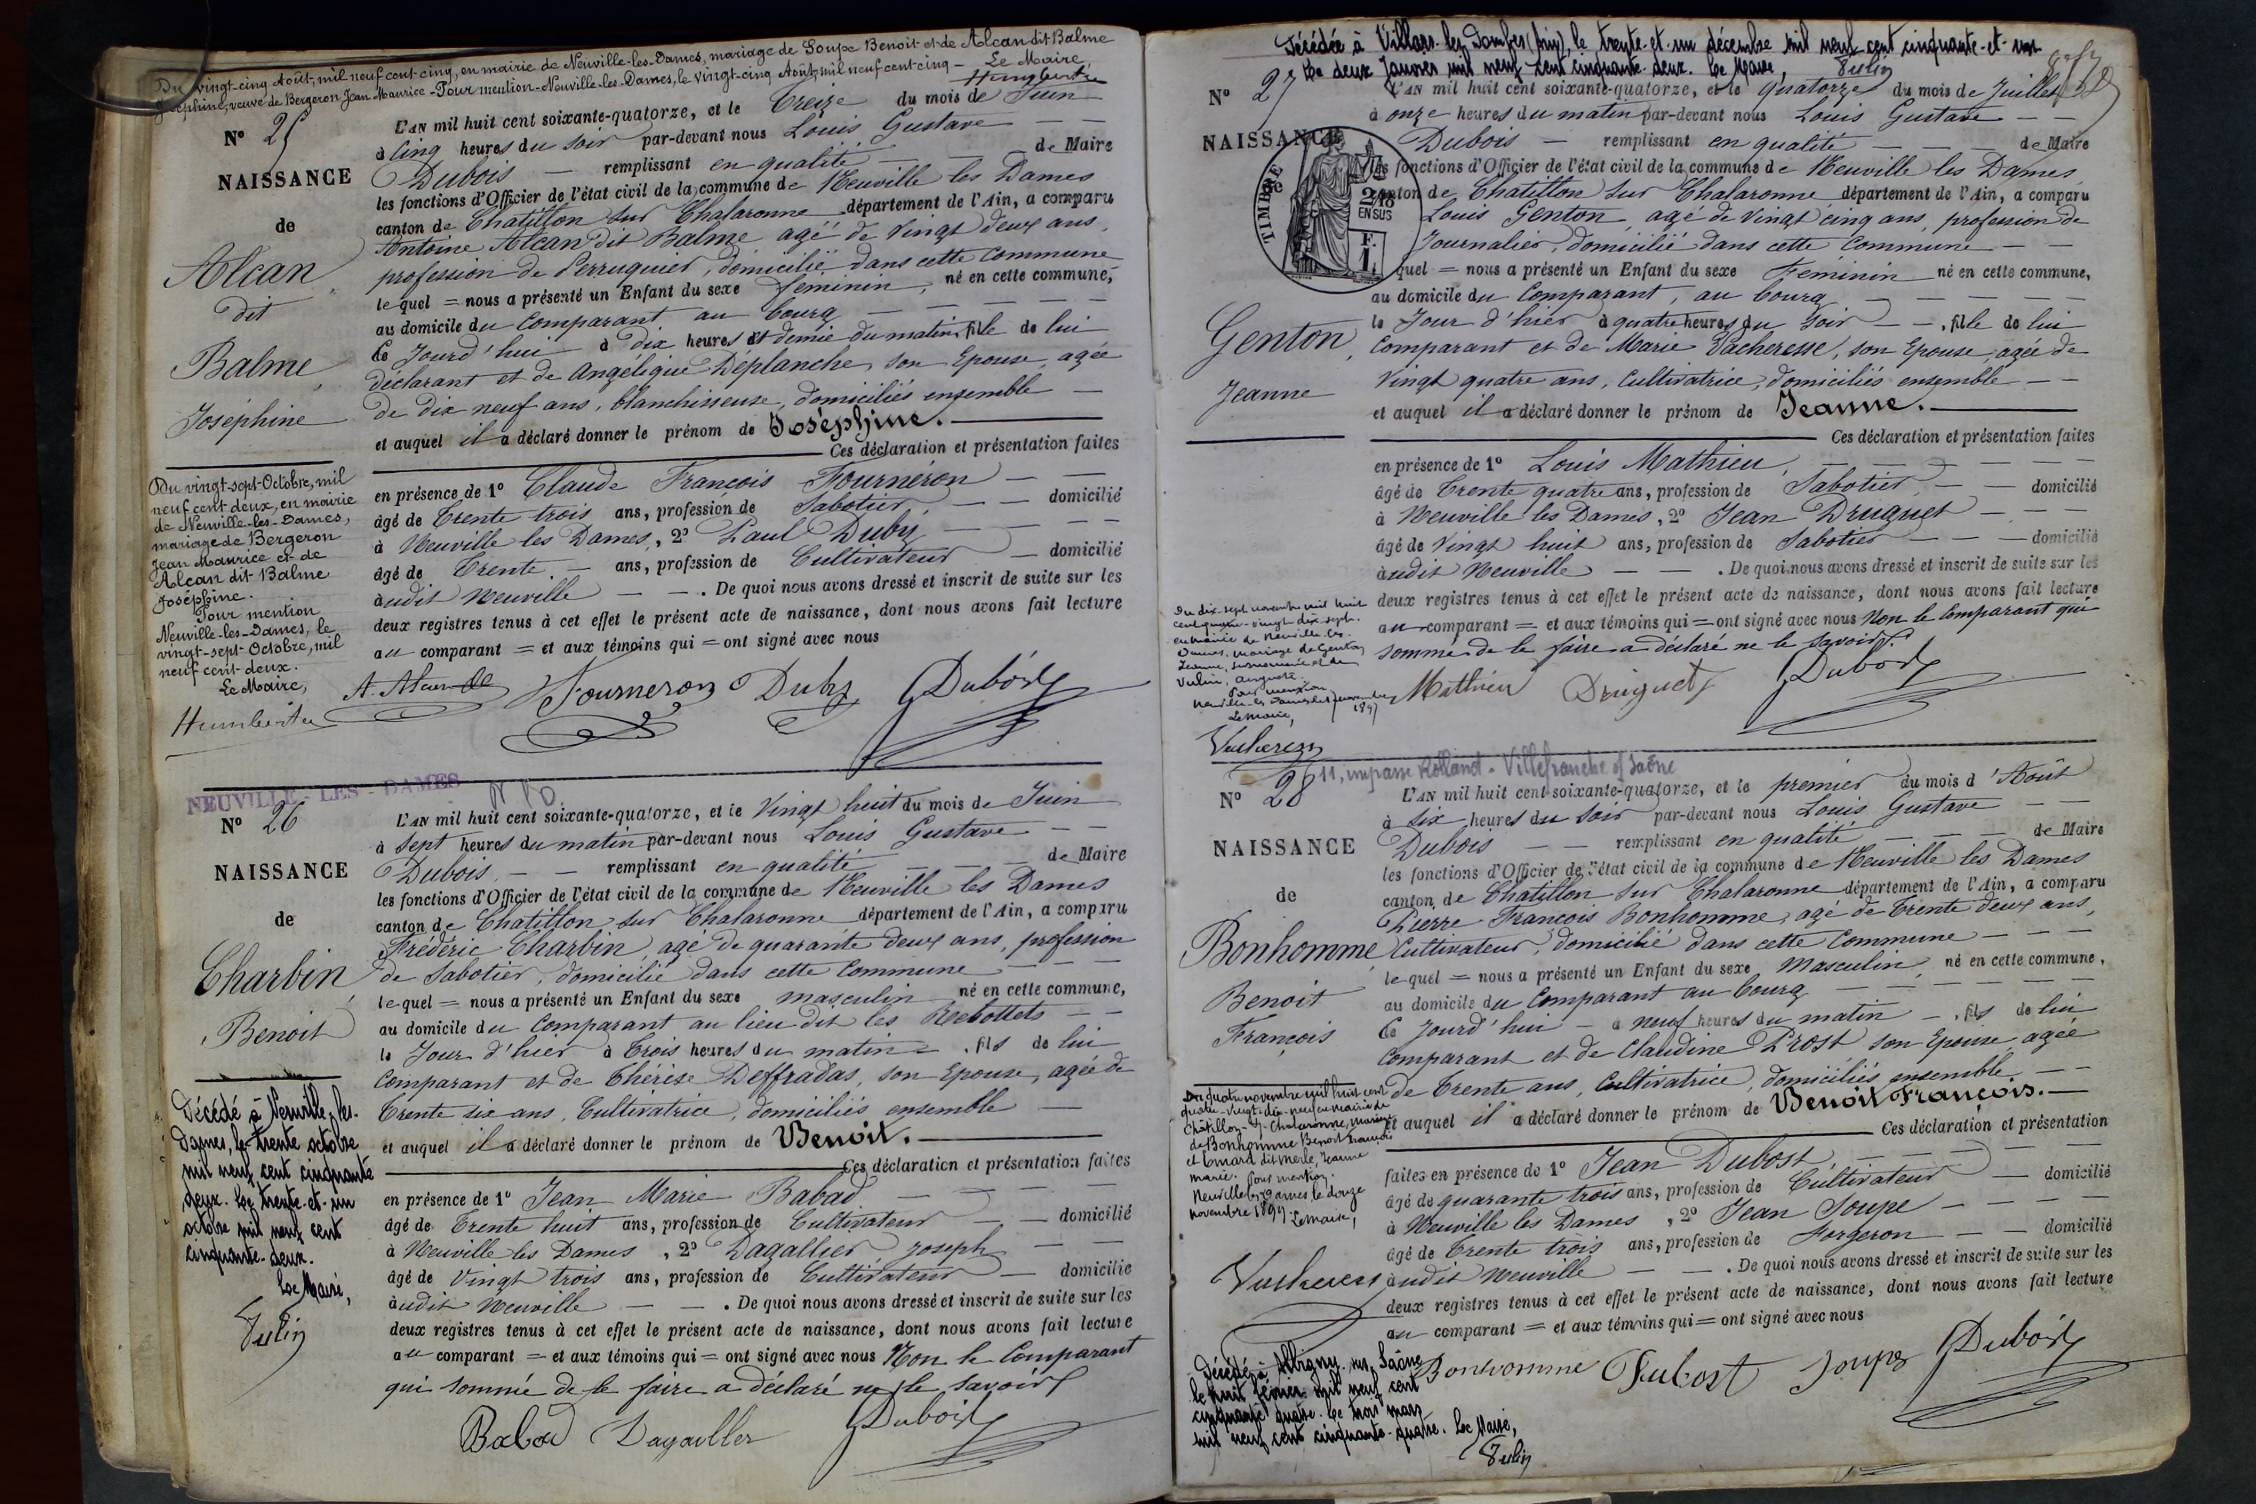 Du vingt-cinq Août, mil neuf cent cinq, en mairie de Neuville-les-Dames, mariage de Soupe Benoit et de Alcan dit Balme
Joséphine, veuve de Bergeron Jean Maurice - Pour mention - Neuville-les-Dames, le vingt-cinq Août, mil neuf cent cinq - Le Maire,
Humbert
N° 25
NAISSANCE
de
Alcan
dit
Balme,
Joséphine
Du vingt-sept Octobre, mil
neuf cent deux, en mairie
de Neuville-les-Dames,
mariage de Bergeron
Jean Maurice et de
Alcan dit Balme
Joséphine.
Pour mention
Neuville-les-Dames, le
vingt-sept Octobre, mil
neuf cent deux.
Le Maire,
L'AN mil huit cent soixante-quatorze, et le Treize du mois de Juin
à Cinq heures du soir par-devant nous Louis Gustave
Dubois remplissant en qualité de Maire
les fonctions d'Officier de l'état civil de la commune de Neuville les Dames
canton de Chatillon sur Chalaronne département de l'Ain, a comparu
Antoine Alcan dit Balme, agé de vingt deux ans,
profession de Perruquier, domicilié dans cette commune
le quel = nous a présenté un Enfant du sexe féminin, né en cette commune,
au domicile du Comparant au bourg
ce Jourd'hui à dix heures et demie du matin, fille de lui
déclarant et de Angélique Déplanche, son Epouse, agée
de dix neuf ans, blanchisseuse, domiciliés ensemble
et auquel il a déclaré donner le prénom de Joséphine.
Ces déclaration et présentation faites
en présence de 1° Claude François Fournéron
âgé de Trente trois ans, profession de Sabotier, domicilié
à Neuville les Dames, 2° Paul Duby
âgé de Trente ans, profession de Cultivateur domicilié
audit Neuville. De quoi nous avons dressé et inscrit de suite sur les
deux registres tenus à cet effet le présent acte de naissance, dont nous avons fait lecture
au comparant = et aux témoins qui = ont signé avec nous
Fourneron Duby Dubois
NEUVILLE-LES-DAMES
N° 26
NAISSANCE
de
Charbin,
Benoit
Décédé à Neuville-les-
Dames, le trente octobre
mil neuf cent cinquante
deux. Le trente-et-un
octobre mil neuf cent
cinquante-deux.
Le Maire,
Vulin
L'AN mil huit cent soixante-quatorze, et le Vingt huit du mois de Juin
à Sept heures du matin par-devant nous Louis Gustave
Dubois remplissant en qualité de Maire
les fonctions d'Officier de l'état civil de la commune de Neuville les Dames
canton de Chatillon sur Chalaronne département de l'Ain, a comparu
Frédéric Charbin, agé de quarante deux ans, profession
de Sabotier, domicilié dans cette Commune
le quel = nous a présenté un Enfant du sexe masculin né en cette commune,
au domicile du Comparant au lieu dit les Rebottets
le Jour d'hier à Trois heures du matin, fils de lui
Comparant et de Thérèse Deffradas, son Epouse, agée de
Trente six ans, Cultivatrice, domiciliés ensemble
et auquel il a déclaré donner le prénom de Benoit.
Ces déclaration et présentation faites
en présence de 1° Jean Marie Babad
âgé de Trente huit ans, profession de Cultivateur domicilié
à Neuville les Dames, 2° Dagallier Joseph
âgé de Vingt trois ans, profession de Cultivateur domicilié
audit Neuville. De quoi nous avons dressé et inscrit de suite sur les
deux registres tenus à cet effet le présent acte de naissance, dont nous avons fait lecture
au comparant = et aux témoins qui = ont signé avec nous Non le Comparant
qui sommé de le faire a déclaré ne le savoir
Babad Dagallier Dubois
Décédée à Villars-les-Dombes (Ain), le trente-et-un décembre mil neuf cent cinquante-et-un
Le deux Janvier mil neuf cent cinquante-deux. Le Maire, Vulin
N° 27
NAISSANCE
de
Genton,
Jeanne
TIMBRE
2/10
EN SUS
F.
1
Du dix-sept novembre mil huit
cent quatre-vingt-dix-sept,
en mairie de Neuville-les-
Dames, mariage de Genton
Jeanne, susnommée et de
Vulin, Auguste.
Pour mention
Le Maire,
L'AN mil huit cent soixante-quatorze, et le quatorze du mois de Juillet
à onze heures du matin par-devant nous Louis Gustave
Dubois remplissant en qualité de Maire
les fonctions d'Officier de l'état civil de la commune de Neuville les Dames
canton de Chatillon sur Chalaronne département de l'Ain, a comparu
Louis Genton, agé de Vingt cinq ans, profession de
Journalier, domicilié dans cette Commune
quel = nous a présenté un Enfant du sexe Féminin né en cette commune,
au domicile du Comparant, au bourg
le Jour d'hier à quatre heures du soir, fille de lui
Comparant et de Marie Vacheresse, son Epouse, agée de
Vingt quatre ans, Cultivatrice, domiciliés ensemble
et auquel il a déclaré donner le prénom de Jeanne.
Ces déclaration et présentation faites
en présence de 1° Louis Mathieu,
âgé de Trente quatre ans, profession de Sabotier, domicilié
à Neuville les Dames, 2° Jean Druguet
âgé de Vingt huit ans, profession de Sabotier domicilié
audit Neuville. De quoi nous avons dressé et inscrit de suite sur les
deux registres tenus à cet effet le présent acte de naissance, dont nous avons fait lecture
au comparant = et aux témoins qui = ont signé avec nous Non le Comparant qui
sommé de le faire a déclaré ne le savoir.
Mathieu Druguet Dubois
11, impasse Rolland - Villefranche s/ Saône
N° 28
NAISSANCE
de
Bonhomme,
Benoit
François
Du quatre novembre mil huit cent
quatre-vingt-dix-neuf en mairie de
Châtillon-s-Chalaronne, mariage
de Bonhomme Benoit François
et dit Merle, Jeanne
Marie. Pour mention.
Neuville les Dames le douze
novembre 1899. Le Maire,
Décédé à Albigny-sur-Saône
le huit février mil neuf cent
cinquante quatre. Le trois mars
mil neuf cent cinquante-quatre. Le Maire,
Vulin
L'AN mil huit cent soixante-quatorze, et le premier du mois d'Août
à six heures du soir par-devant nous Louis Gustave
Dubois remplissant en qualité de Maire
les fonctions d'Officier de l'état civil de la commune de Neuville les Dames
canton de Chatillon sur Chalaronne département de l'Ain, a comparu
Pierre François Bonhomme, agé de Trente deux ans,
Cultivateur, domicilié dans cette Commune
le quel = nous a présenté un Enfant du sexe Masculin, né en cette commune,
au domicile du Comparant au bourg
ce Jourd'hui à neuf heures du matin, fils de lui
Comparant et de Claudine Prost son Epouse agée
de Trente ans, Cultivatrice, domiciliés ensemble
et auquel il a déclaré donner le prénom de Benoit François.
Ces déclaration et présentation
faites en présence de 1° Jean Dubost,
âgé de quarante trois ans, profession de Cultivateur domicilié
à Neuville les Dames, 2° Jean Soupe
âgé de Trente trois ans, profession de Forgeron domicilié
audit Neuville. De quoi nous avons dressé et inscrit de suite sur les
deux registres tenus à cet effet le présent acte de naissance, dont nous avons fait lecture
au comparant = et aux témoins qui = ont signé avec nous
Bonhomme Dubost Soupe Dubois